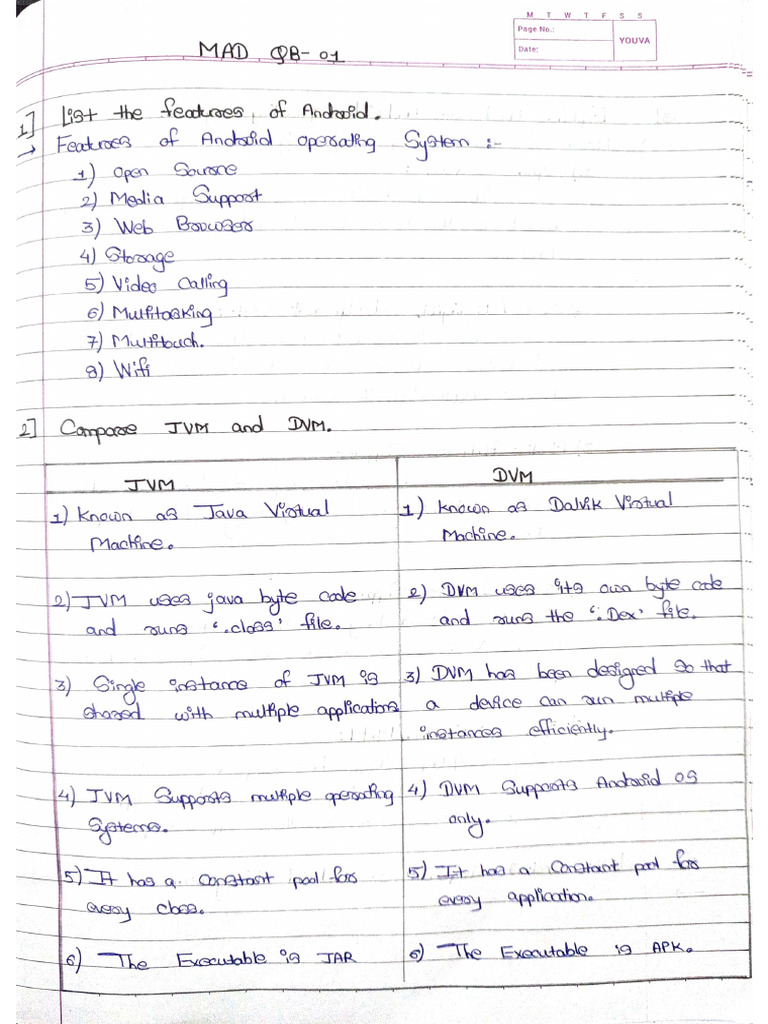 M T W T F S S
Page No.:
Date:
YOUVA
MAD QB-01
1] List the features, of Android.
→ Features of Android operating System :-
1) Open Source
2) Media Support
3) Web Browser
4) Storage
5) Video Calling
6) Multitasking
7) Multitouch.
8) Wifi
2] Compare JVM and DVM.
JVM
1) Known as Java Virtual
Machine.
2) JVM uses java byte code
and runs '.class' file.
3) Single instance of JVM is
shared with multiple applications
4) JVM Supports multiple operating
Systems.
5) It has a constant pool for
every class.
6) The Executable is JAR
DVM
1) Known as Dalvik Virtual
Machine.
2) DVM uses its own byte code
and runs the '.Dex' file.
3) DVM has been designed so that
a device can run multiple
instances efficiently.
4) DVM Supports Android OS
only.
5) It has a constant pool for
every application.
6) The Executable is APK.